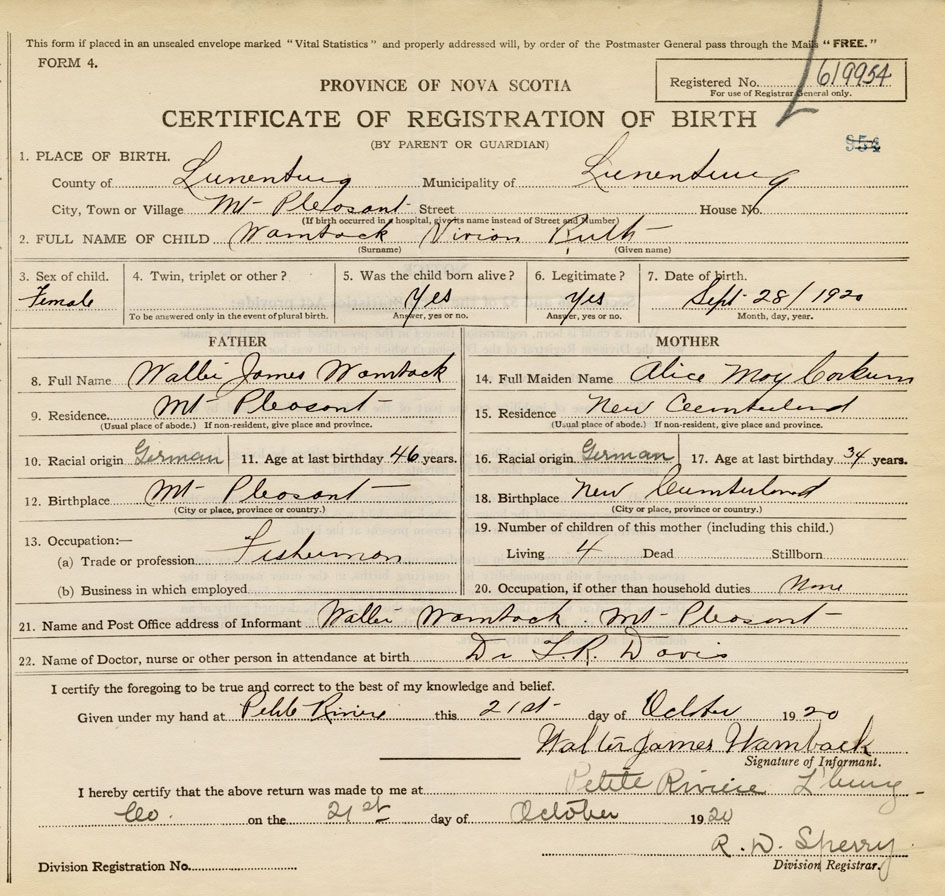 This form if placed in an unsealed envelope marked "Vital Statistics" and properly addressed will, by order of the Postmaster General pass through the Mails "FREE."
FORM 4.
PROVINCE OF NOVA SCOTIA
Registered No. 619954
For use of Registrar General only.
CERTIFICATE OF REGISTRATION OF BIRTH
(BY PARENT OR GUARDIAN)
954
1. PLACE OF BIRTH.
County of Lunenburg Municipality of Lunenburg
City, Town or Village Mt Pleasant Street House No.
(If birth occurred in a hospital, give its name instead of Street and Number)
2. FULL NAME OF CHILD Wamback Vivian Ruth
(Surname) (Given name)
3. Sex of child. 4. Twin, triplet or other? 5. Was the child born alive? 6. Legitimate? 7. Date of birth.
Female Yes Yes Sept 28/1920
To be answered only in the event of plural birth. Answer, yes or no. Answer, yes or no. Month, day, year.
FATHER MOTHER
8. Full Name Walter James Wamback 14. Full Maiden Name Alice May Corkum
9. Residence Mt Pleasant 15. Residence New Cumberland
(Usual place of abode.) If non-resident, give place and province. (Usual place of abode.) If non-resident, give place and province.
10. Racial origin German 11. Age at last birthday 46 years. 16. Racial origin German 17. Age at last birthday 34 years.
12. Birthplace Mt Pleasant 18. Birthplace New Cumberland
(City or place, province or country.) (City or place, province or country.)
19. Number of children of this mother (including this child.)
13. Occupation:—
(a) Trade or profession Fisherman Living 4 Dead Stillborn
(b) Business in which employed 20. Occupation, if other than household duties None
21. Name and Post Office address of Informant Walter Wamback. Mt Pleasant
22. Name of Doctor, nurse or other person in attendance at birth Dr F.R. Davis
I certify the foregoing to be true and correct to the best of my knowledge and belief.
Given under my hand at Petite Riviere this 21st day of October 1920
Walter James Wamback
Signature of Informant.
I hereby certify that the above return was made to me at Petite Riviere L'burg
Co. on the 21st day of October 1920
R. D. Sperry
Division Registration No. Division Registrar.